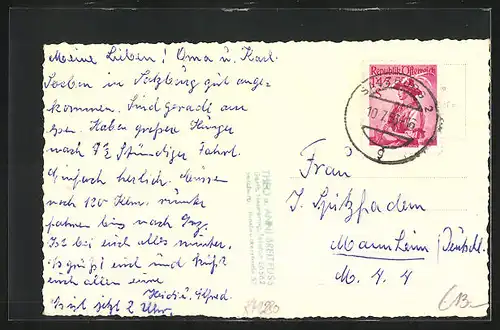 Meine Lieben! Oma u. Karl.
Soeben in Salzburg gut ange-
kommen. Sind gerade am
Essen. Haben großen Hunger
nach 7½ Stündiger Fahrt.
Einfach herlich. Müssen
noch 120 Klm. rünter
fahren bis nach
Ist bei euch alles munter.
Es grüßt euch und küßt
euch allen eure
Heidi u. Alfred.
Es ist jetzt 2 Uhr.
Republik Österreich
Frau
J. Spitzfadem
Mannheim/Deutschl.
M. 4. 4